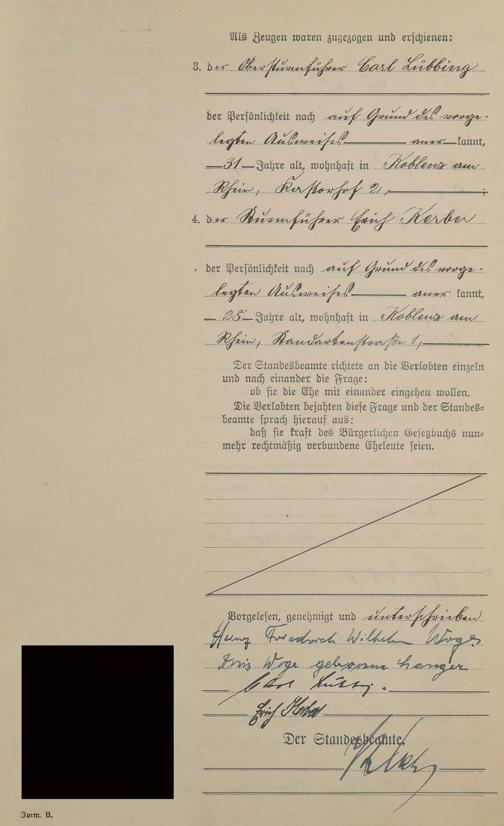 Als Zeugen waren zugezogen und erschienen:
3. der Obersturmführer Carl Lübbing
der Persönlichkeit nach auf Grund des vorge-
legten Ausweises aner kannt,
31 Jahre alt, wohnhaft in Koblenz am
Rhein, Kastorhof 2,
4. der Sturmführer Erich Kerber
der Persönlichkeit nach auf Grund des vorge-
legten Ausweises aner kannt,
28 Jahre alt, wohnhaft in Koblenz am
Rhein, Standartenstraße 1,
Der Standesbeamte richtete an die Verlobten einzeln
und nach einander die Frage:
ob sie die Ehe mit einander eingehen wollen.
Die Verlobten bejahten diese Frage und der Standes-
beamte sprach hierauf aus:
daß sie kraft des Bürgerlichen Gesetzbuchs nun-
mehr rechtmäßig verbundene Eheleute seien.
Vorgelesen, genehmigt und unterschrieben
Friedrich Wilhelm
Woge geborene Langer
Carl
Erich
Der Standesbeamte.
Form. B.